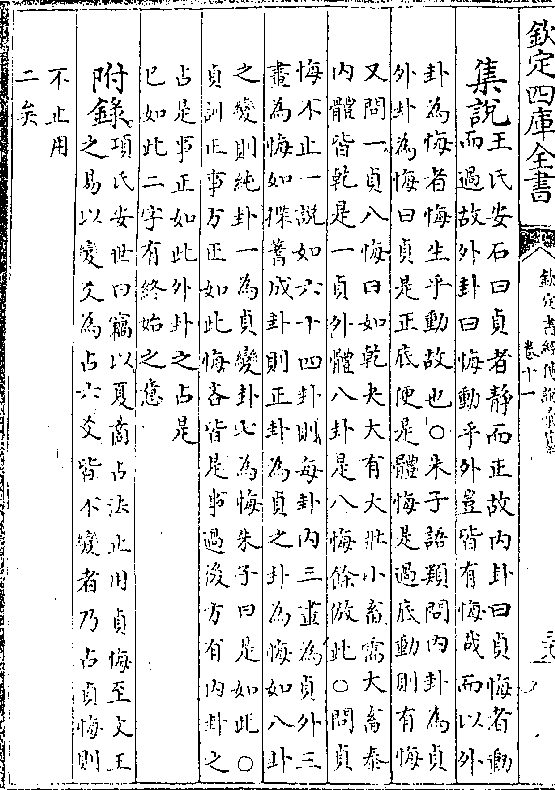 欽定四庫全書
欽定書經傳說彙纂
卷十一
集說王氏安石曰貞者静而正故内卦曰貞悔者動
而過故外卦曰悔動乎外豈皆有悔哉而以外
卦為悔者悔生乎動故也○朱子語類問内卦為貞
外卦為悔曰貞是正底便是體悔是過底動則有悔
又問一貞八悔曰如乾夬大有大壯小畜需大畜泰
内體皆乾是一貞外體八卦是八悔餘倣此○問貞
悔不止一說如六十四卦則每卦内三畫為貞外三
畫為悔如揲蓍成卦則正卦為貞之卦為悔如八卦
之變則純卦一為貞變卦七為悔朱子曰是如此○
貞訓正事方正如此悔吝皆是事過後方有内卦之
占是事正如此外卦之占是
已如此二字有終始之意
附錄項氏安世曰竊以夏商占法止用貞悔至文王
之易以變爻為占六爻皆不變者乃占貞悔則
不止用
二矣